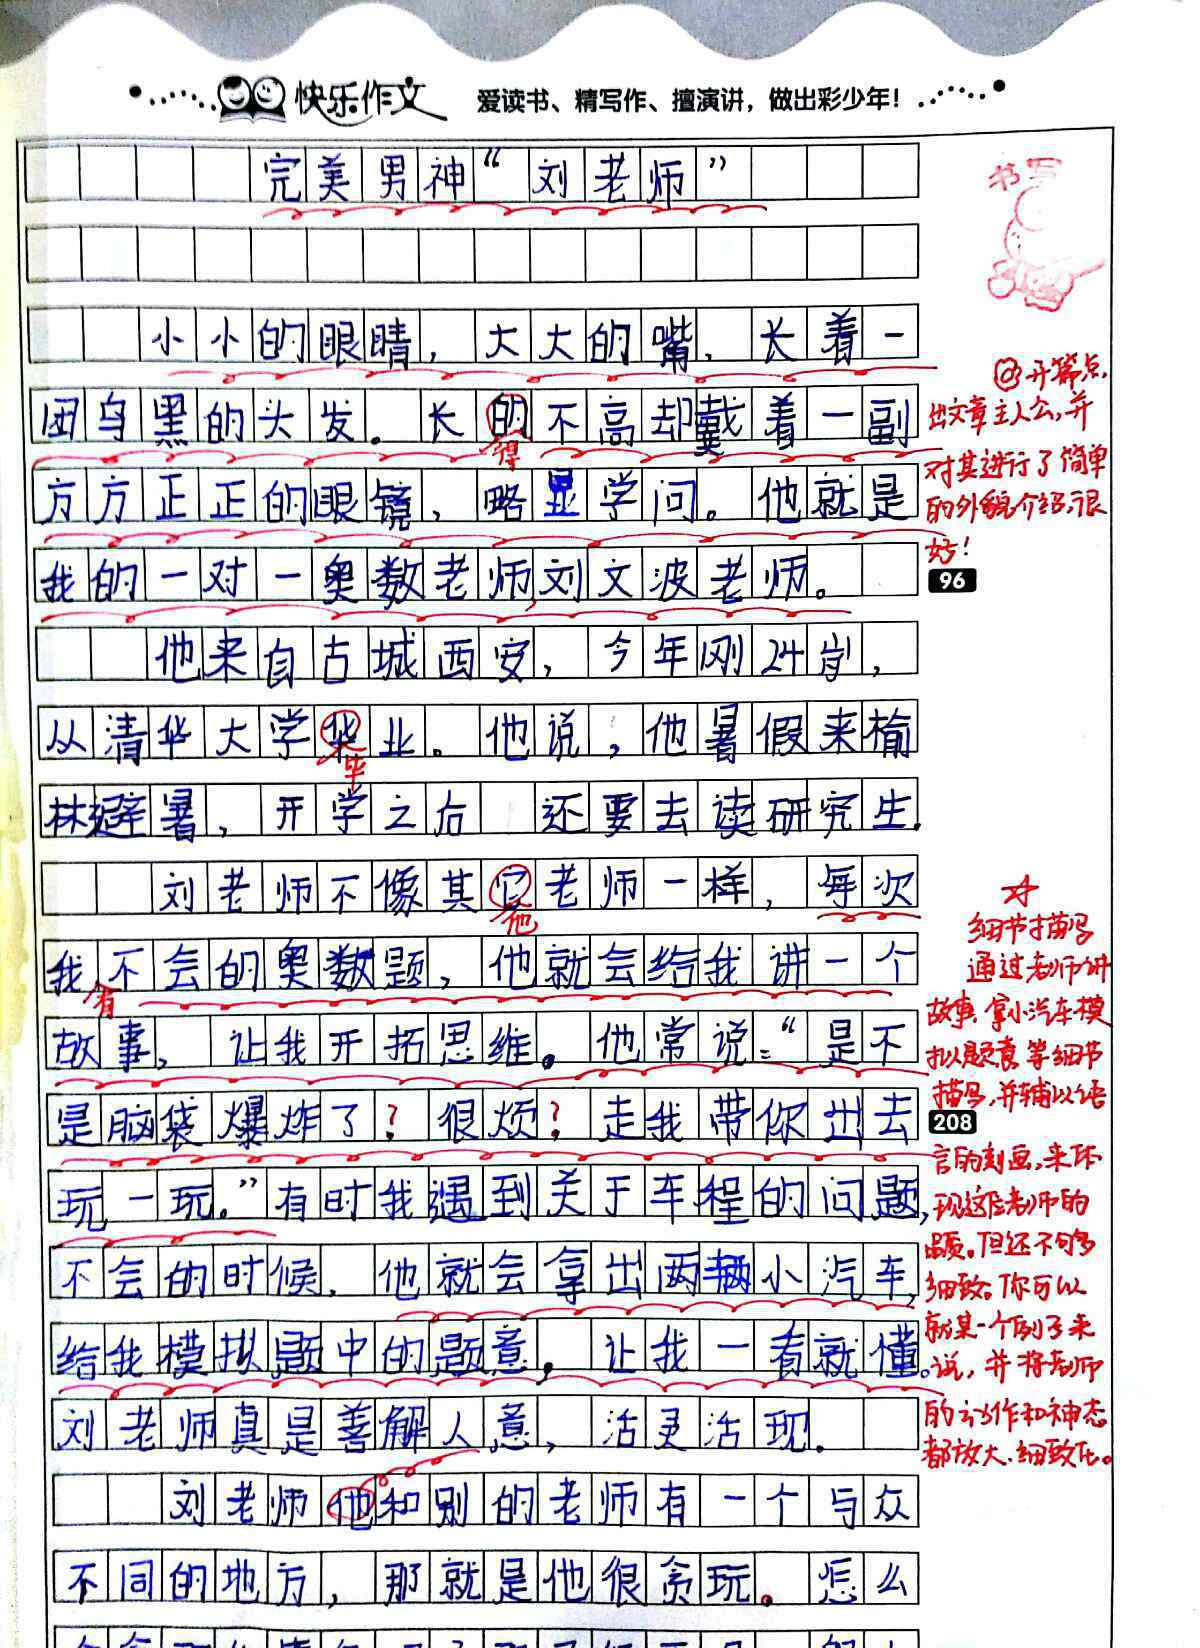 快乐作文 爱读书、精写作、擅演讲，做出彩少年！
完美男神“刘老师”
书写
小小的眼睛，大大的嘴，长着一
团乌黑的头发．长的不高却戴着一副
得
方方正正的眼镜，略显学问。他就是
我的一对一奥数老师,刘文波老师。
@开篇点
出文章主人公,并
对其进行了简单
的外貌介绍,很
好！
96
他来自古城西安，今年刚24岁，
从清华大学华业。他说，他暑假来榆
毕
林避暑，开学之后 还要去读研究生．
刘老师不像其它老师一样，每次
他
我不会的奥数题，他就会给我讲一个
有
故事，让我开拓思维。他常说：“是不
是脑袋爆炸了？很烦？走我带你出去
玩一玩。”有时我遇到关于车程的问题，
不会的时候．他就会拿出两辆小汽车，
给我模拟题中的题意，让我一看就懂。
刘老师真是善解人意，活灵活现．
细节描写
通过老师讲
故事、拿小汽车模
拟题意等细节
描写,并辅以语
208
言的刻画,来体
现这位老师的
品质。但还不够
细致。你可以
就某一个例子来
说，并将老师
的动作和神态
都放大、细致化。
刘老师他和别的老师有一个与众
不同的地方，那就是他很贪玩。怎么